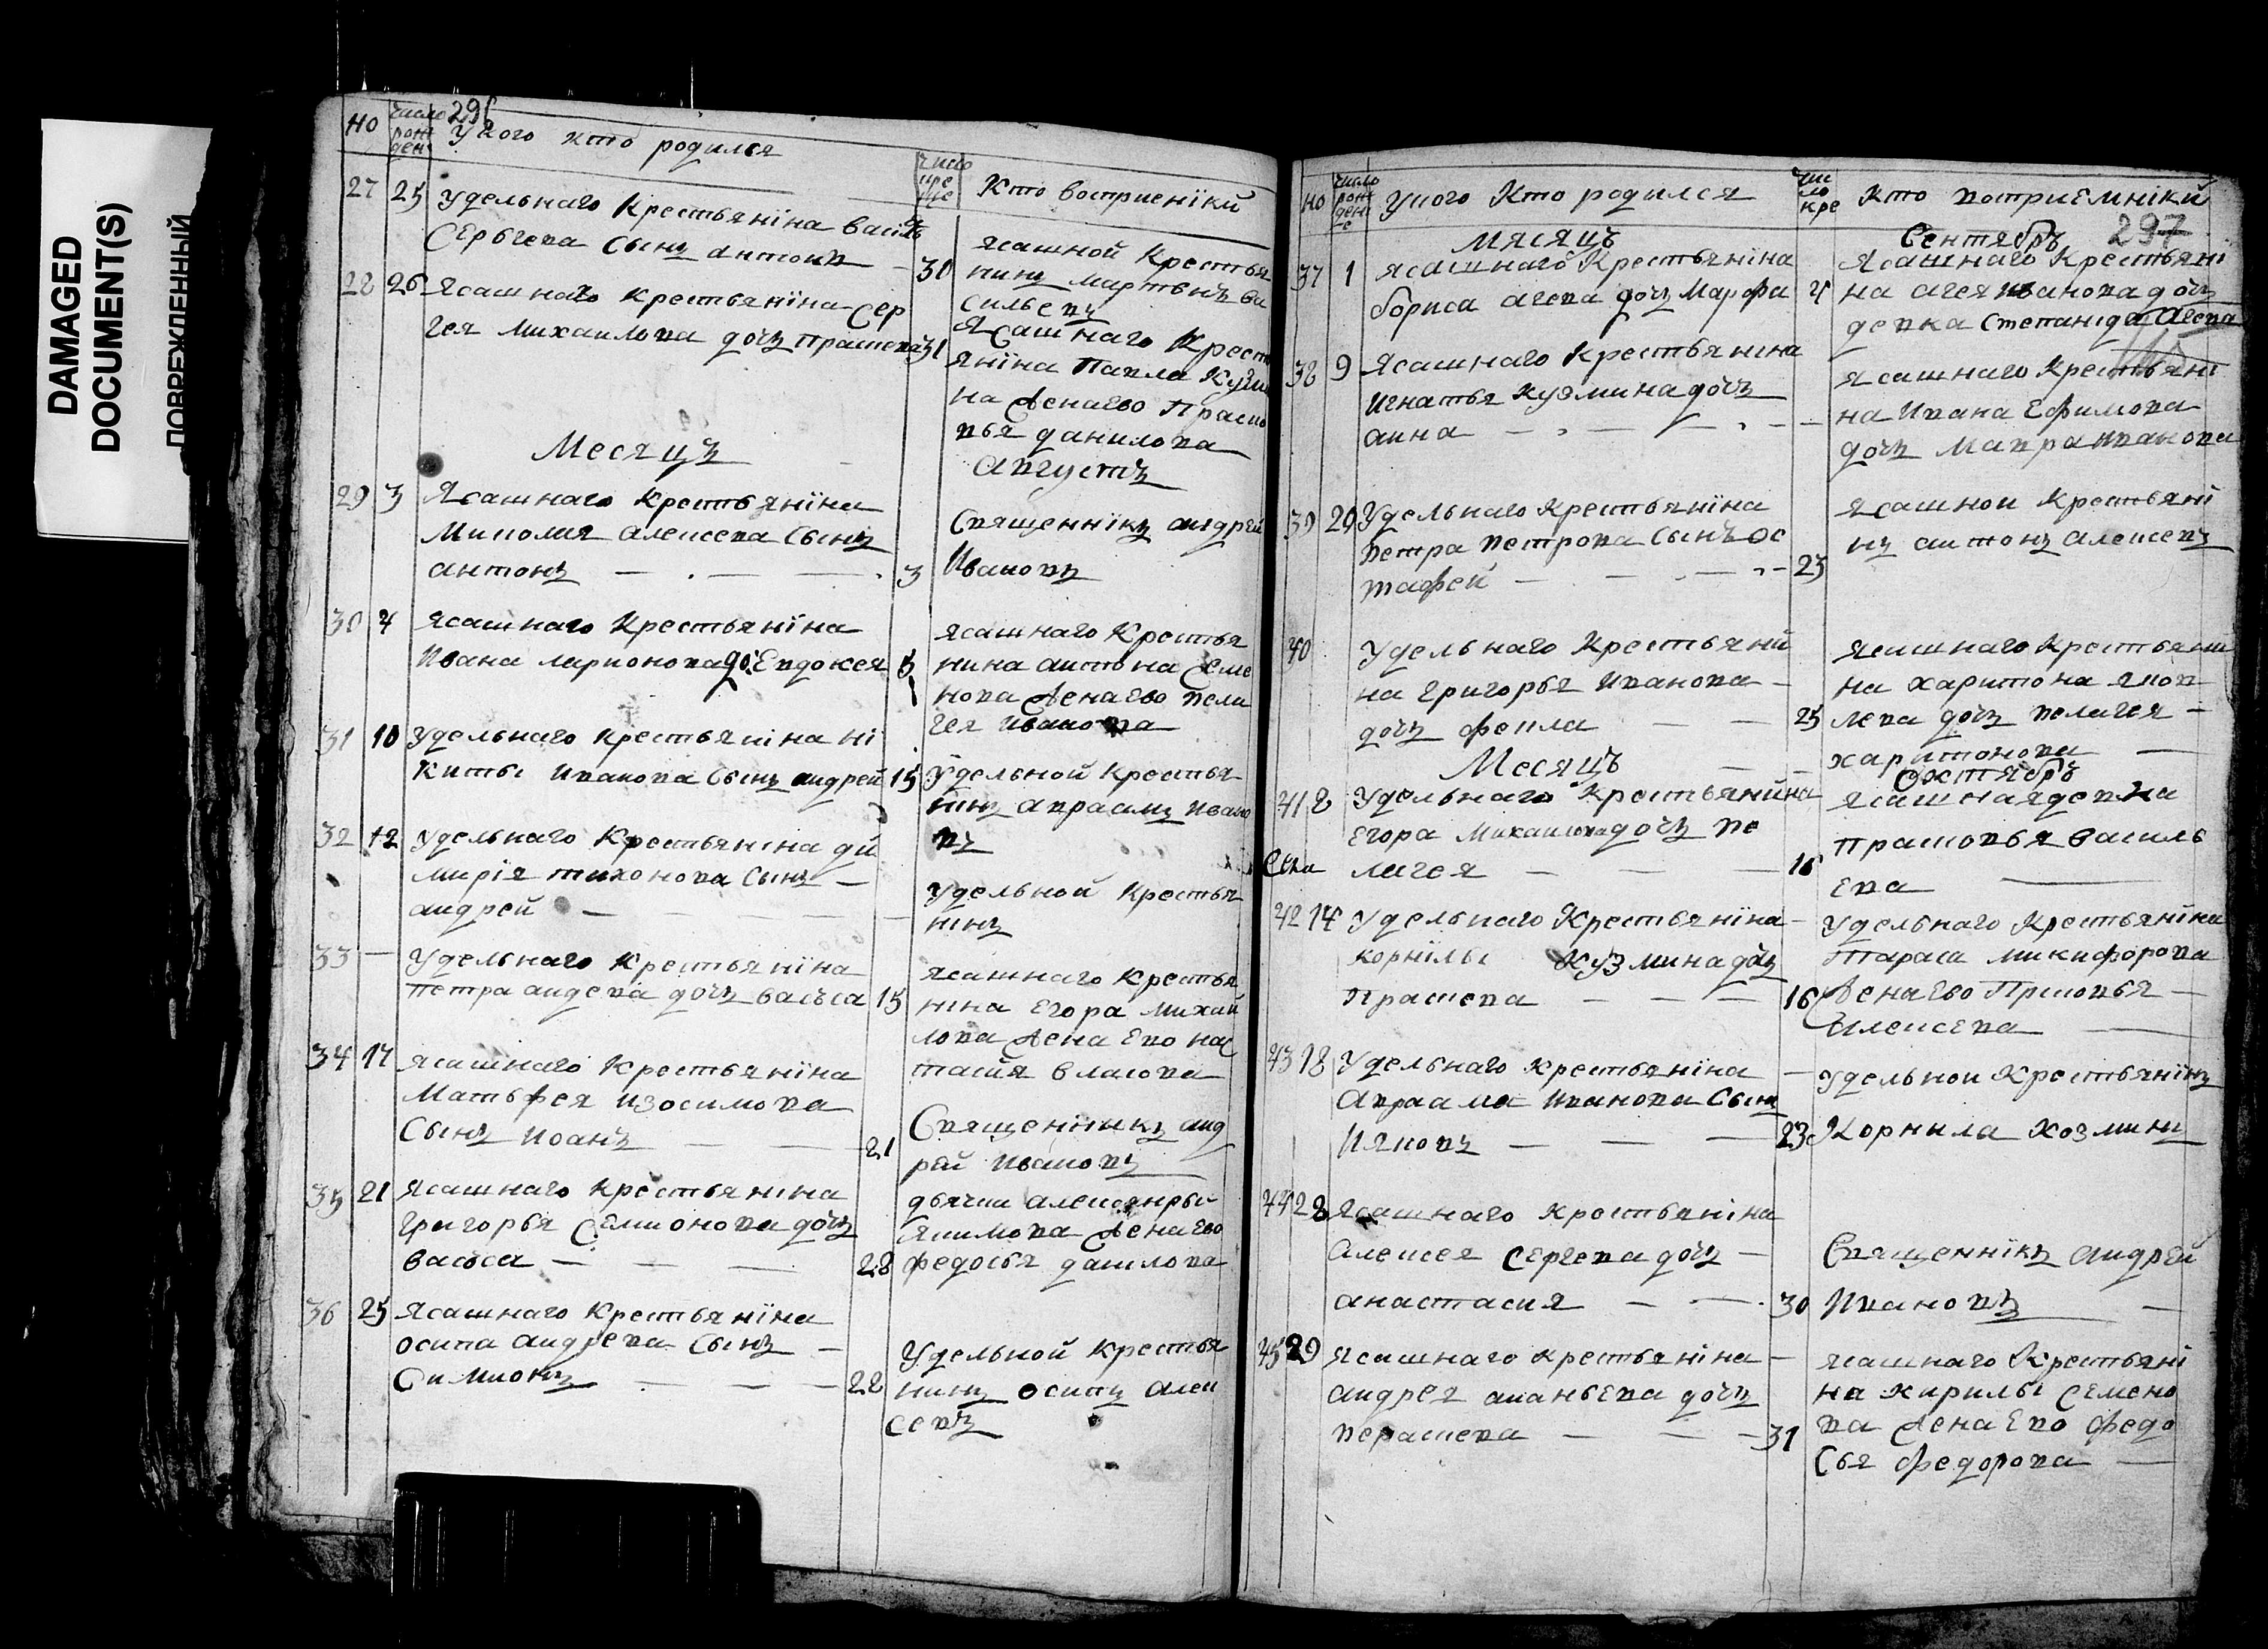 DAMAGED
DOCUMENT(S)
ПОВРЕЖДЕННЫЙ
но
число
рож
ден
296
У кого кто родился
число
кре
ще
Кто восприенїки
27 25 удельнаго Крестьянїна васил
Серьгева Сынъ антонъ
30
ясашной Крестья
нинъ мартынъ ва
сильевъ
28 26 Ясашнаго крестьянїна Сер
гея михаилова дочь прасковья
31
Ясашнаго Крест
янїна Павла Кузми
на Жена ево Праско
вья данилова
Месяцъ
Августъ
29 3 Ясашнаго Крестьянїна
Миколая алексева Сынъ
антонъ
3
Священнїкъ андрей
Ивановъ
30 4 ясашнаго Крестьянїна
Ивана ларионова до: Евдокея
5
ясашнаго Крестья
нина антона Семе
нова Жена ево пела
гея Иванова
31 10 удельнаго крестьянїна ні
киты иванова Сынъ андрей
15
удельной крестья
нинъ авраамъ ивано
въ
32 12 удельнаго Крестьянїна ди
мирія тихонова Сынъ
андрей
удельной крестья
нїнъ
33 — Удельнаго Крестьянїна
петра андева дочь васъса
15
ясашнаго крестья
нїна Егора михаи
лова Жена Ево нас
тасия власова
34 17 ясашнаго Крестьянїна
Матьфея изосимова
Сынъ иоанъ
21
Священникъ анд
рей Ивановъ
35 21 Ясашнаго Крестьяніна
григорья Семионова дочь
васъса
28
дьячка александры
якимова Жена ево
федосья данилова
36 25 Ясашнаго Крестьянїна
осипа андрева Сынъ
Симионъ
28
Удельной крестья
нинъ осипъ алек
севъ
но
число
рож
дени
е
У кого Кто родился
чи
ло
кре
Кто воспрїемнїки
297
Мясяцъ
Сентябръ
37 1 ясашнаго Крестьяніна
бориса агева дочь Марфа
4
Ясашнаго Крестьяні
на агея иванова дочь
девка Степанїда Агева
38 9 Ясашнаго крестьянїна
Игнатья кузмина дочь
анна
ясашнаго крестьянї
на Ивана Ефимова
дочь Мавра иванова
39 20 Удельнаго крестьянїна
Петра петрова Сынъ ос
тафей
23
ясашнои крестьянї
нъ антонъ алексевъ
40 Удельнаго Крестьяни
на григорья иванова
дочь фекла
25
ясашнаго крестьяни
на харитона яков
лева дочь пелагея
харитонова
Месяцъ
Октябръ
41 8 Удельнаго крестьянина
Егора михаилова дочь пе
лагея
16
ясашная девка
прасковья василь
ева
42 14 Удельнаго Крестьянїна
корнїлы Кузмина дочь
Праскева
16
Удельнаго крестьянїна
Тараса микифорова
Жена Ево Прсковья
Алексева
43 18 Удельнаго крестьянїна
Авраама Иванова Сынъ
Ияковъ
23
удельнои Крестьянїнъ
Корнила козминъ
44 28 Ясашнаго крестьянїна
алексея Сергева дочь
анастасия
30
Священнїкъ андрей
Ивановъ
45 29 ясашнаго крестьянїна
андрея ананьева дочь
пераскева
31
ясашнаго Крестьянї
на кирилы Семено
ва Жена Ево федо
сья федорова